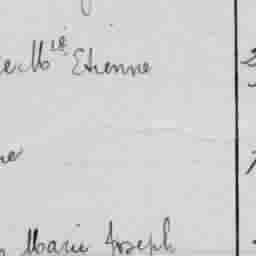 e M^ie Etienne
ne
Marie Joseph